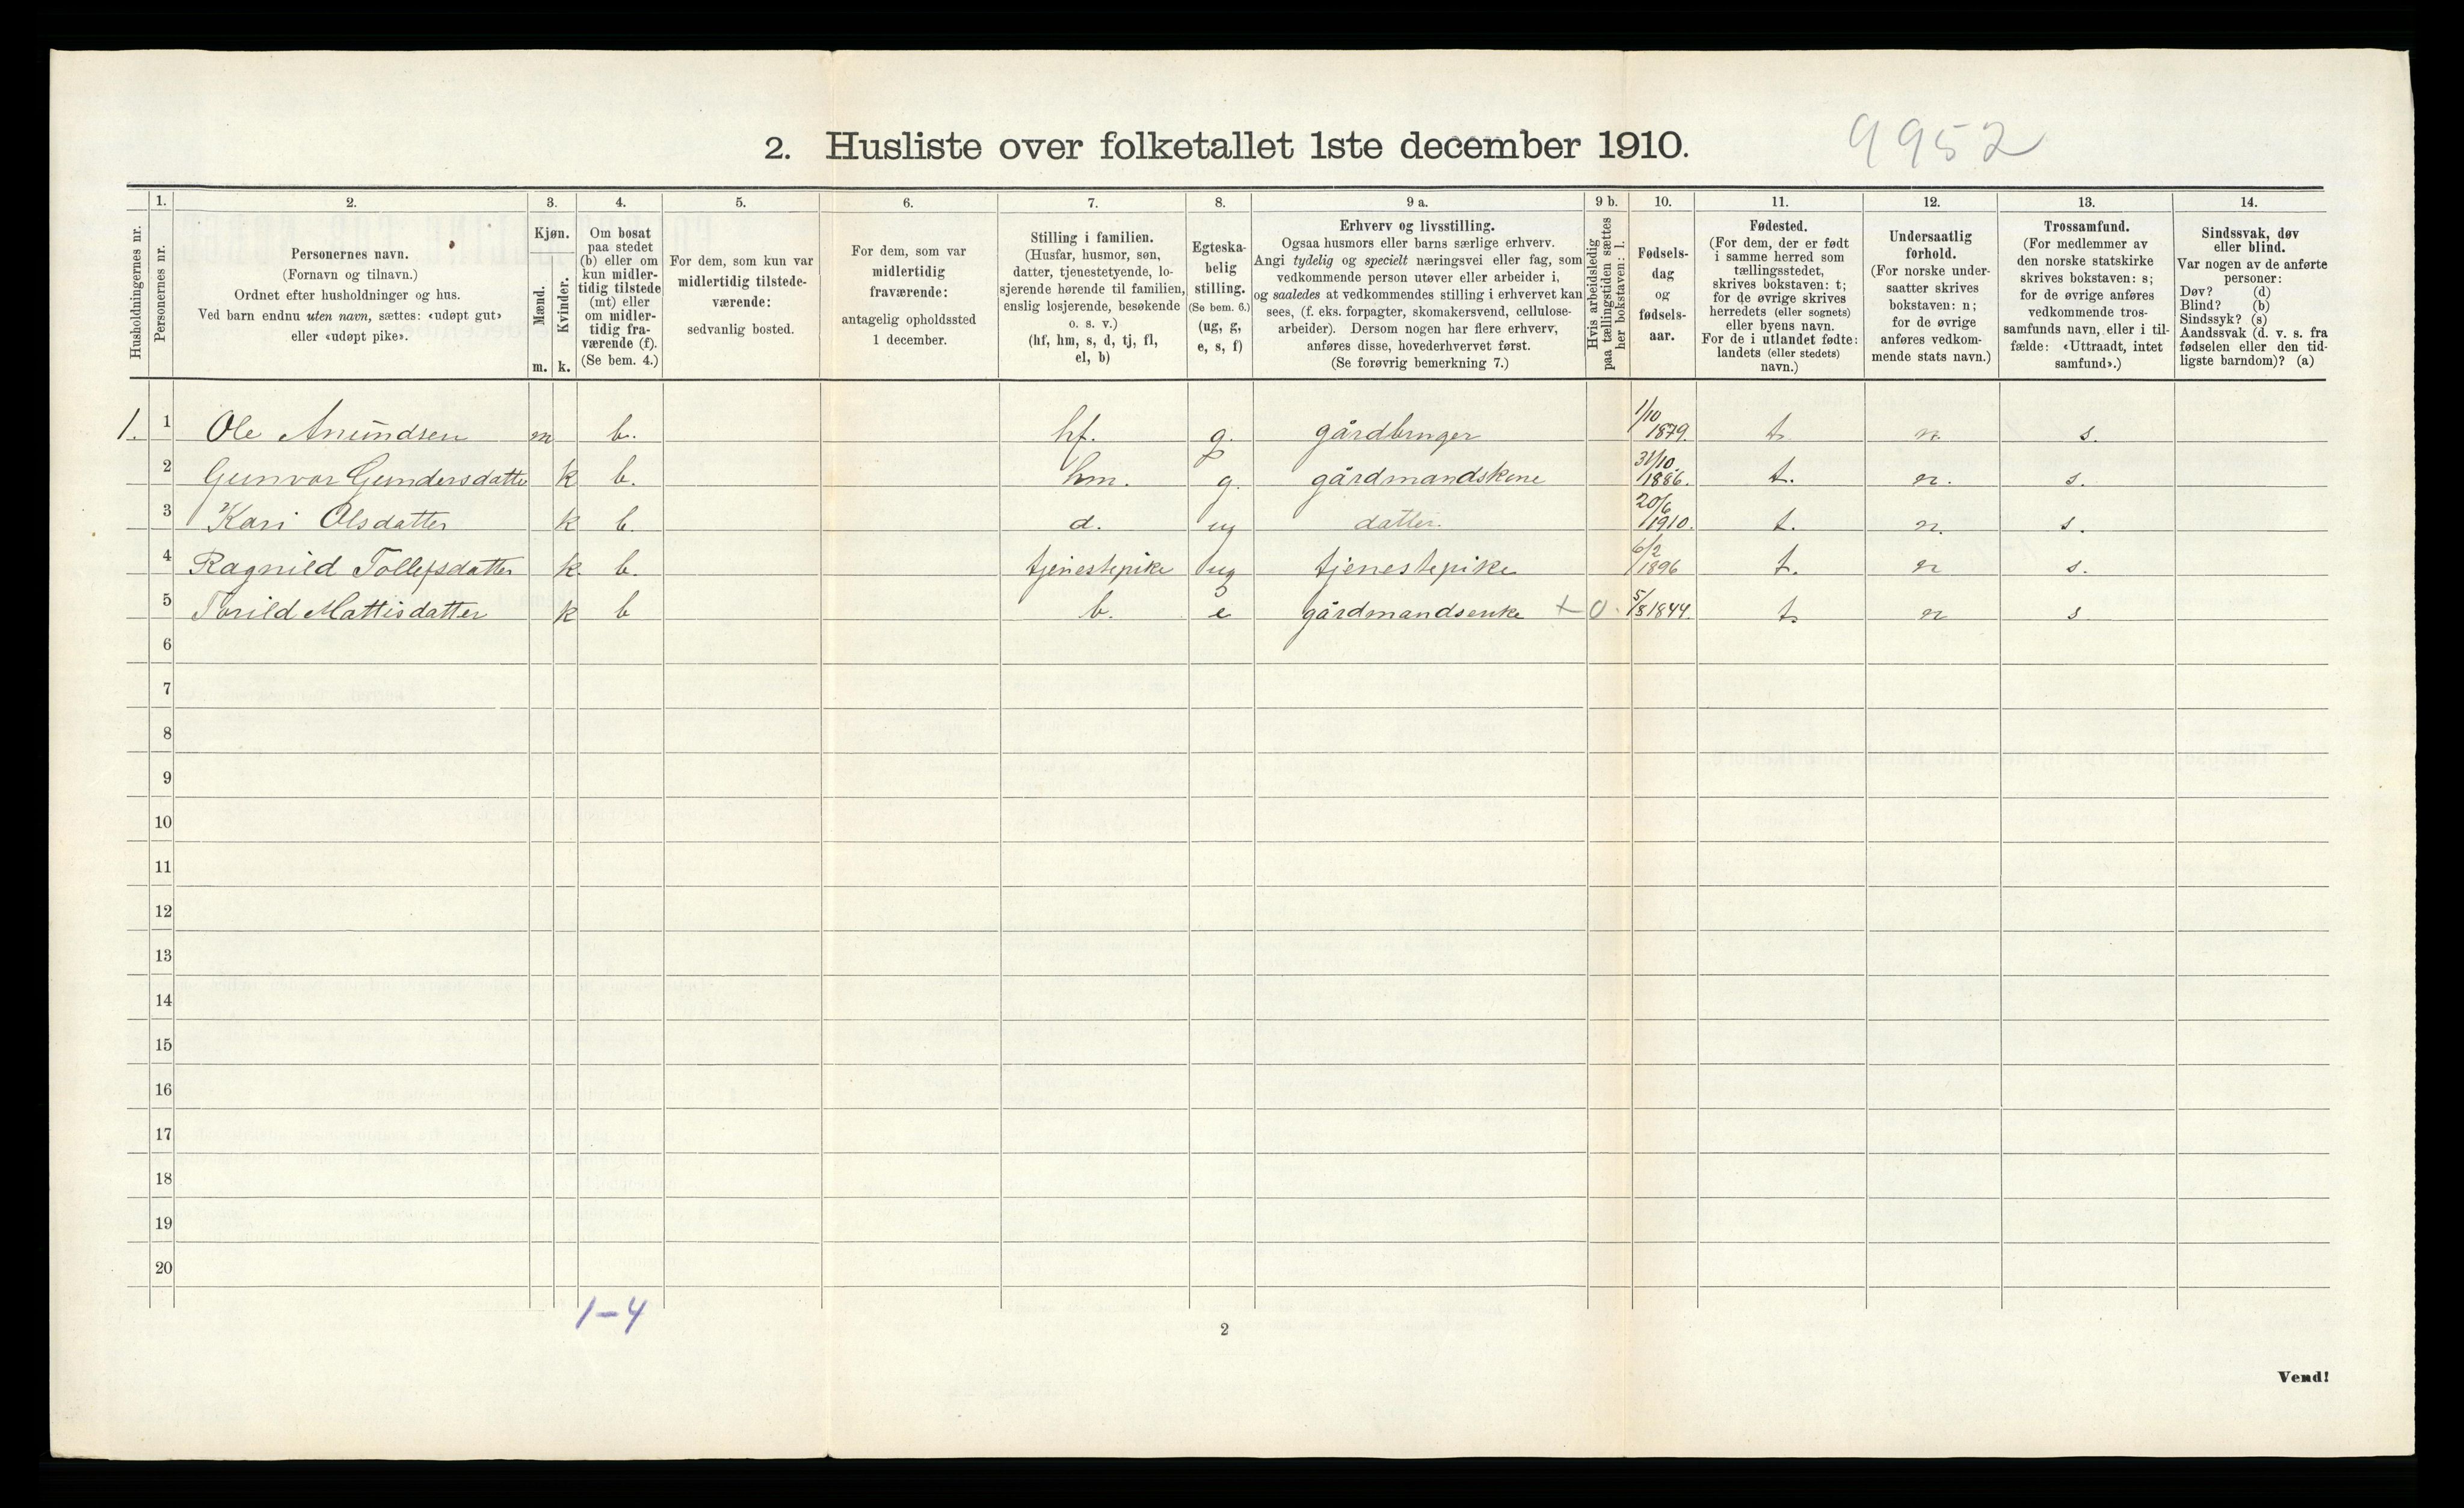 2. Husliste over folketallet 1ste december 1910.
9952
Husholdningernes nr.
1.
Personernes nr.
2.
Personernes navn.
(Fornavn og tilnavn.)
Ordnet efter husholdninger og hus.
Ved barn endnu uten navn, sættes: «udøpt gut»
eller «udøpt pike».
3.
Kjøn.
Mænd.
Kvinder.
m. k.
4.
Om bosat
paa stedet
(b) eller om
kun midler-
tidig tilstede
(mt) eller
om midler-
tidig fra-
værende (f).
(Se bem. 4.)
5.
For dem, som kun var
midlertidig tilstede-
værende:
sedvanlig bosted.
6.
For dem, som var
midlertidig
fraværende:
antagelig opholdssted
1 december.
7.
Stilling i familien.
(Husfar, husmor, søn,
datter, tjenestetyende, lo-
sjerende hørende til familien,
enslig losjerende, besøkende
o. s. v.)
(hf, hm, s, d, tj, fl,
el, b)
8.
Egteska-
belig
stilling.
(Se bem. 6.)
(ug, g,
e, s, f)
9 a.
Erhverv og livsstilling.
Ogsaa husmors eller barns særlige erhverv.
Angi tydelig og specielt næringsvei eller fag, som
vedkommende person utøver eller arbeider i,
og saaledes at vedkommendes stilling i erhvervet kan
sees, (f. eks. forpagter, skomakersvend, cellulose-
arbeider). Dersom nogen har flere erhverv,
anføres disse, hovederhvervet først.
(Se forøvrig bemerkning 7.)
9 b.
Hvis arbeidsledig
paa tællingstiden sættes
her bokstaven: l.
10.
Fødsels-
dag
og
fødsels-
aar.
11.
Fødested.
(For dem, der er født
i samme herred som
tællingsstedet,
skrives bokstaven: t;
for de øvrige skrives
herredets (eller sognets)
eller byens navn.
For de i utlandet fødte:
landets (eller stedets)
navn.)
12.
Undersaatlig
forhold.
(For norske under-
saatter skrives
bokstaven: n;
for de øvrige
anføres vedkom-
mende stats navn.)
13.
Trossamfund.
(For medlemmer av
den norske statskirke
skrives bokstaven: s;
for de øvrige anføres
vedkommende tros-
samfunds navn, eller i til-
fælde: «Uttraadt, intet
samfund».)
14.
Sindssvak, døv
eller blind.
Var nogen av de anførte
personer:
Døv? (d)
Blind? (b)
Sindssyk? (s)
Aandssvak (d. v. s. fra
fødselen eller den tid-
ligste barndom)? (a)
1. 1 Ole Anundsen m b. hf. g. gårdbruger 1/10 1879. t. n. s.
2 Gunvor Gundersdatter k b. hm. g. gårdmandskone 31/10 1886. t. n. s.
3 Kari Olsdatter k b. d. ug datter. 20/6 1910. t. n. s.
4 Ragnild Tollefsdatter k. b. tjenestepike ug tjenestepike 6/2 1896 t. n s.
5 Torild Mattisdatter k b b. e gårdmandsenke + 0. 5/8 1844. t. n s
6
7
8
9
10
11
12
13
14
15
16
17
18
19
20
1-4
2
Vend!